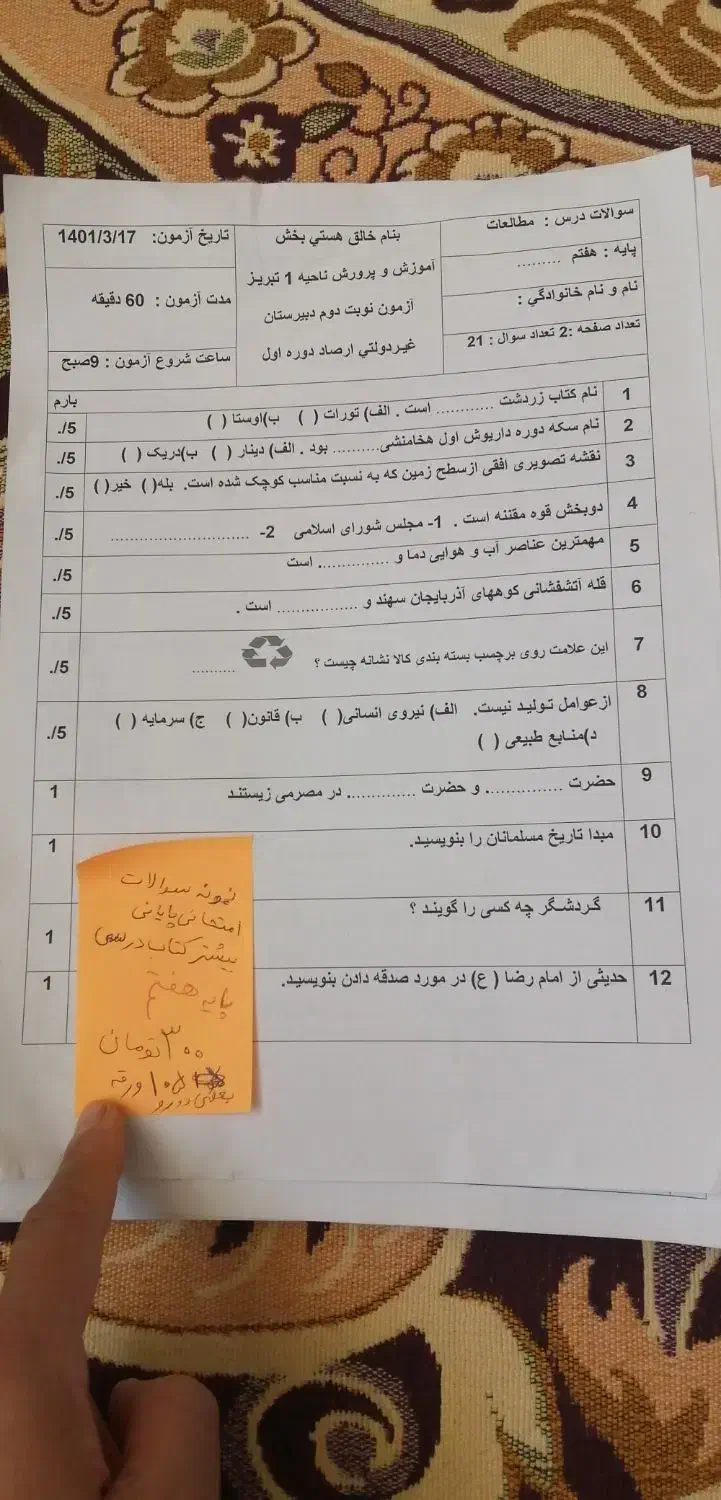 سوالات درس : مطالعات
پایه : هفتم .........
نام و نام خانوادگي :
تعداد صفحه :2 تعداد سوال : 21
بنام خالق هستي بخش
آموزش و پرورش ناحیه 1 تبریز
آزمون نوبت دوم دبیرستان
غیردولتي ارصاد دوره اول
تاریخ آزمون: 1401/3/17
مدت آزمون : 60 دقیقه
ساعت شروع آزمون : 9صبح
بارم
1 نام کتاب زردشت ............ است . الف) تورات ( ) ب)اوستا ( ) 5/.
2 نام سکه دوره داریوش اول هخامنشی.......... بود . الف) دینار ( ) ب)دریک ( ) 5/.
3 نقشه تصویری افقی ازسطح زمین که به نسبت مناسب کوچک شده است. بله( ) خیر( ) 5/.
4 دوبخش قوه مقننه است . 1- مجلس شورای اسلامی 2- ............................. 5/.
5 مهمترین عناصر آب و هوایی دما و .............. است 5/.
6 قله آتشفشانی کوههای آذربایجان سهند و ................. است . 5/.
7 این علامت روی برچسب بسته بندی کالا نشانه چیست ؟ .......... 5/.
8 ازعوامل تولید نیست. الف) نیروی انسانی( ) ب) قانون( ) ج) سرمایه ( )
د)منابع طبیعی ( ) 5/.
9 حضرت ............... و حضرت .............. در مصرمی زیستند 1
10 مبدا تاریخ مسلمانان را بنویسید. 1
11 گردشگر چه کسی را گویند ؟ 1
12 حدیثی از امام رضا ( ع) در مورد صدقه دادن بنویسید. 1
نمونه سوالات
امتحانی پایانی
بیشتر کتاب درسی
پایه هفتم
۳۰۰ تومان
ورقه
بعضی دورو